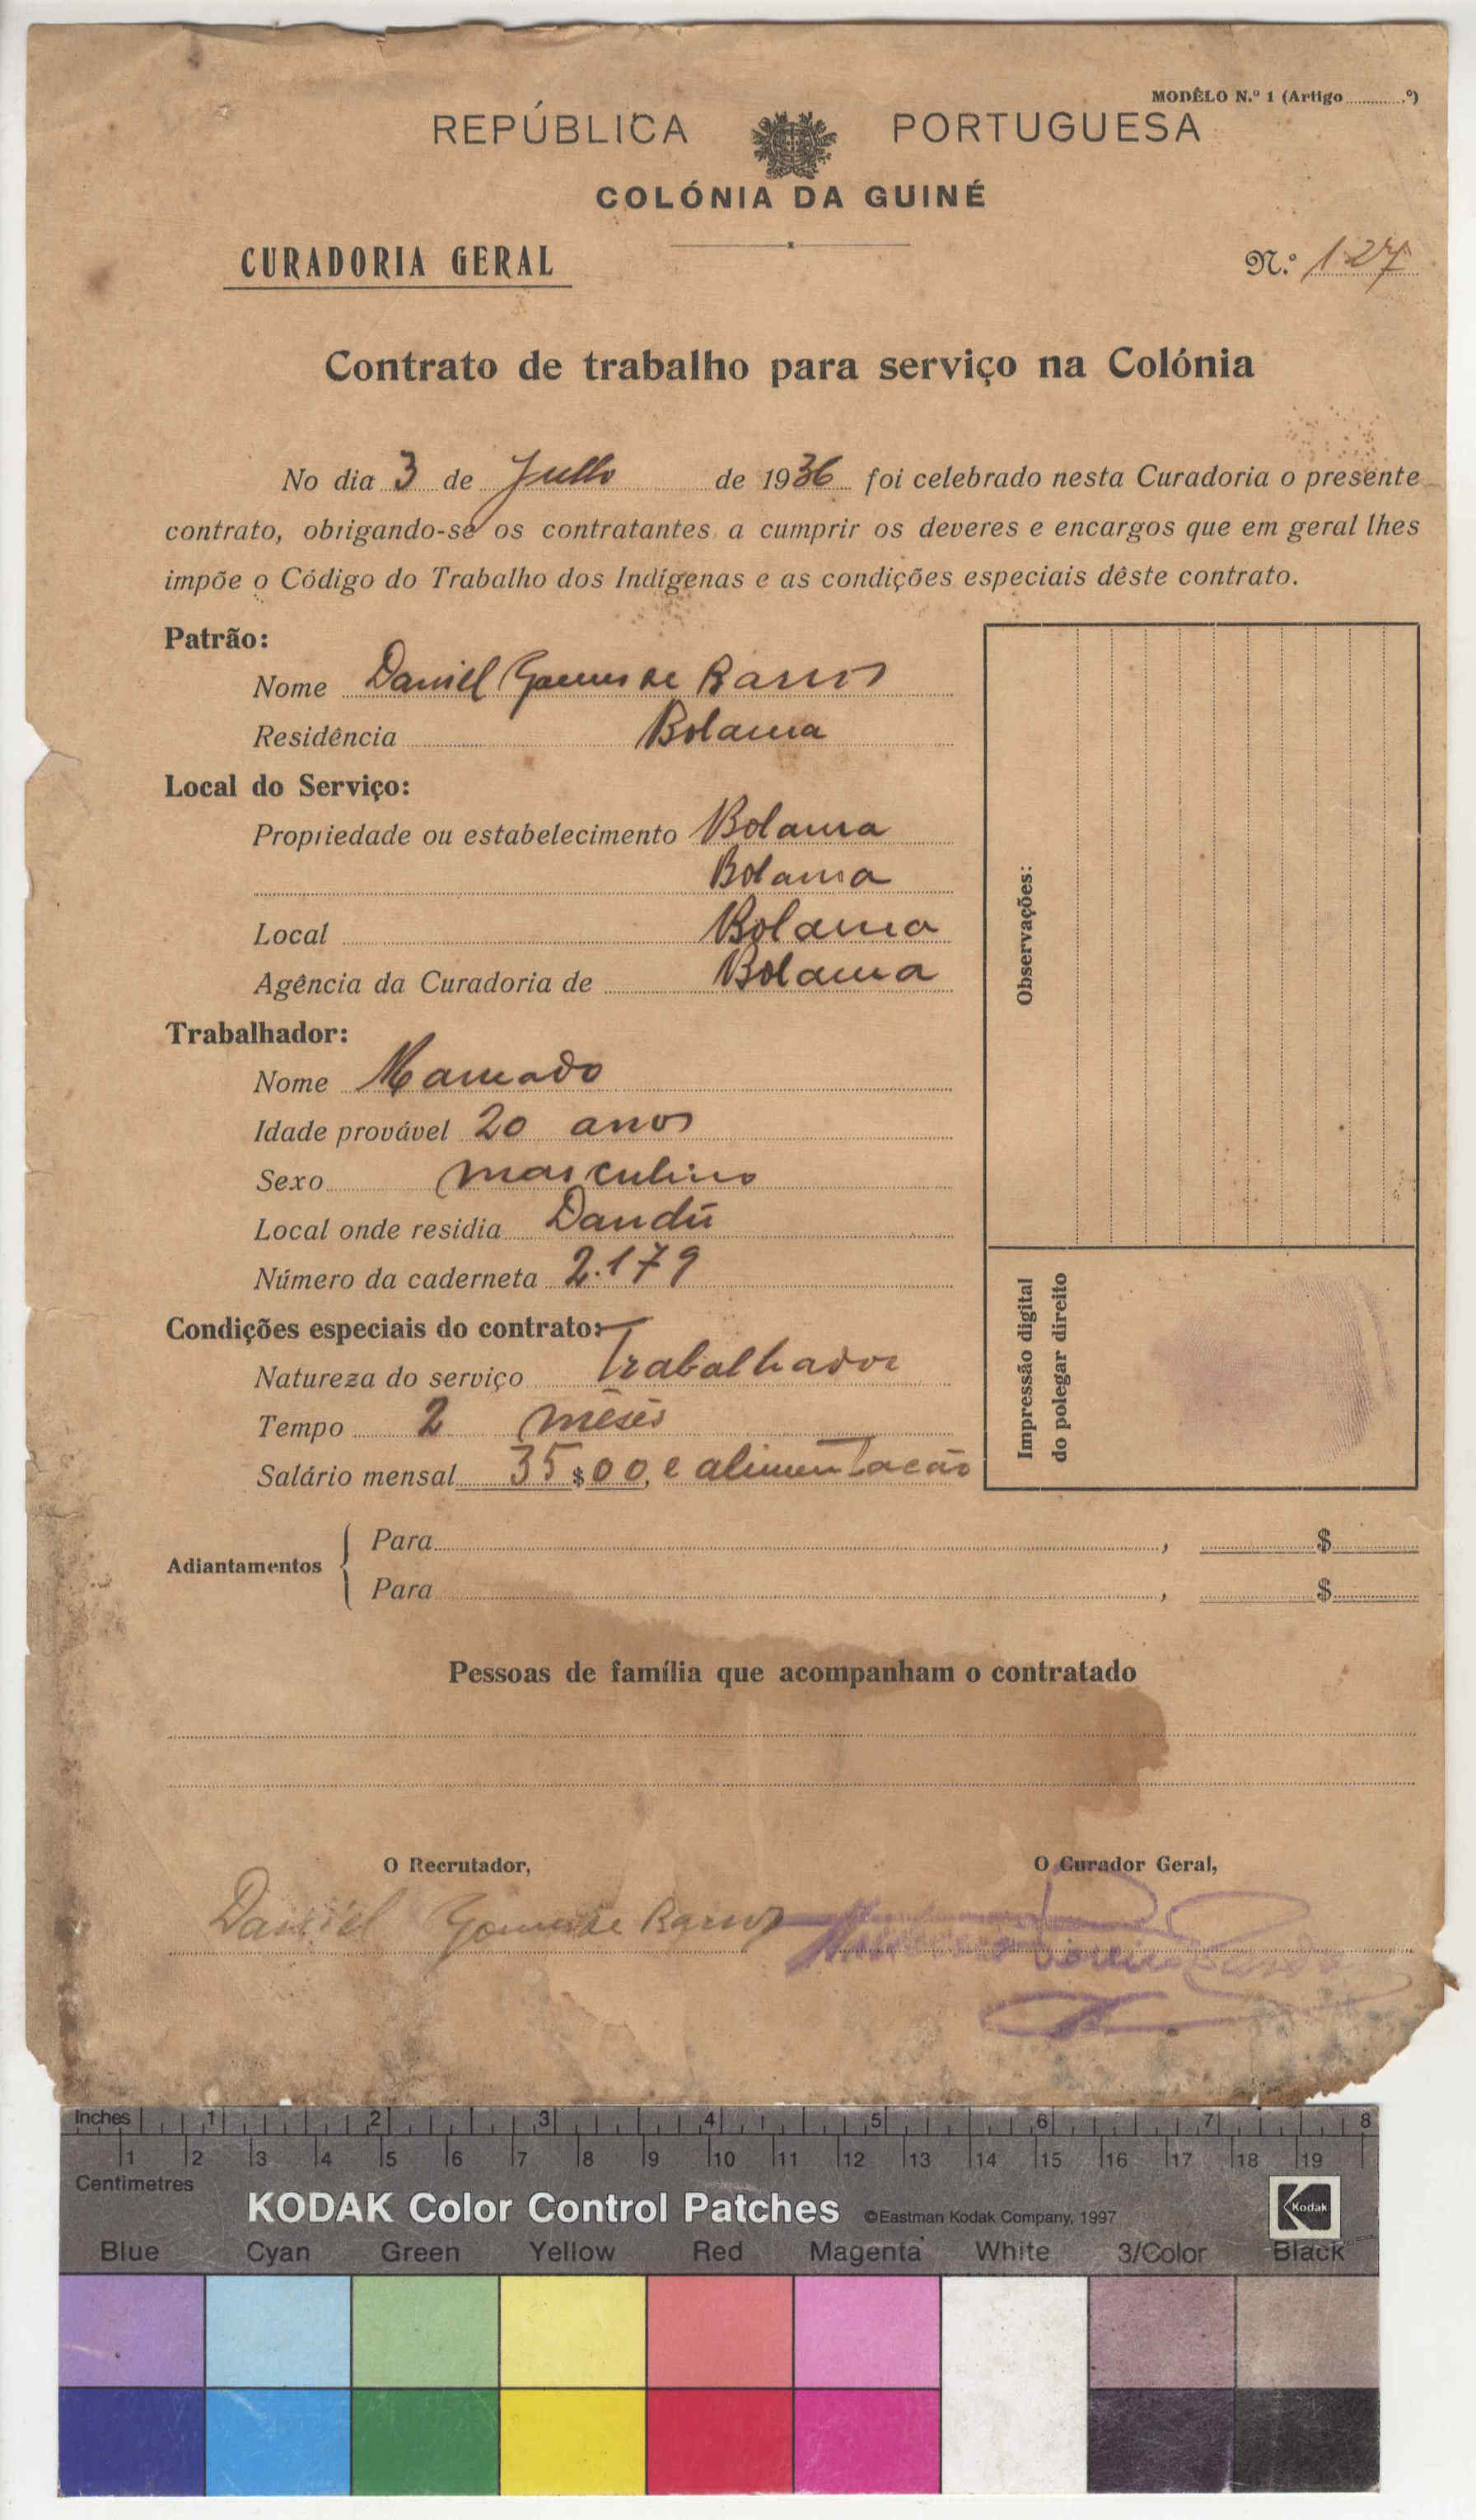 MODÊLO N.º 1 (Artigo ............º)
REPÚBLICA PORTUGUESA
COLÓNIA DA GUINÉ
CURADORIA GERAL
N.º 127
Contrato de trabalho para serviço na Colónia
No dia 3 de Julho de 1936 foi celebrado nesta Curadoria o presente
contrato, obrigando-se os contratantes a cumprir os deveres e encargos que em geral lhes
impõe o Código do Trabalho dos Indígenas e as condições especiais dêste contrato.
Patrão:
Nome Daniel Gomes de Barros
Residência Bolama
Local do Serviço:
Propriedade ou estabelecimento Bolama
Bolama
Local Bolama
Agência da Curadoria de Bolama
Trabalhador:
Nome Mamado
Idade provável 20 anos
Sexo masculino
Local onde residia Dandú
Número da caderneta 2.179
Condições especiais do contrato:
Natureza do serviço Trabalhador
Tempo 2 mêses
Salário mensal 35$00, e alimentacão
Observações:
Impressão digital
do polegar direito
Adiantamentos
Para , $
Para , $
Pessoas de família que acompanham o contratado
O Recrutador,
Daniel Gomes de Barros
O Curador Geral,
Inches 1 2 3 4 5 6 7 8
1 2 3 4 5 6 7 8 9 10 11 12 13 14 15 16 17 18 19
Centimetres
KODAK Color Control Patches ©Eastman Kodak Company, 1997
Kodak
Blue Cyan Green Yellow Red Magenta White 3/Color Black